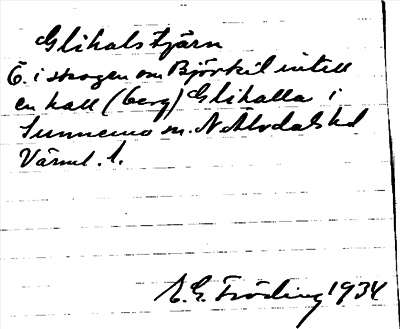 Glihalstjärn
Ö. i skogen om Björkil intill
en hall (berg) Glihalla i
Sunnemo sn. N Älvdals hd
Värml. l.
E. G. Fröding 1934